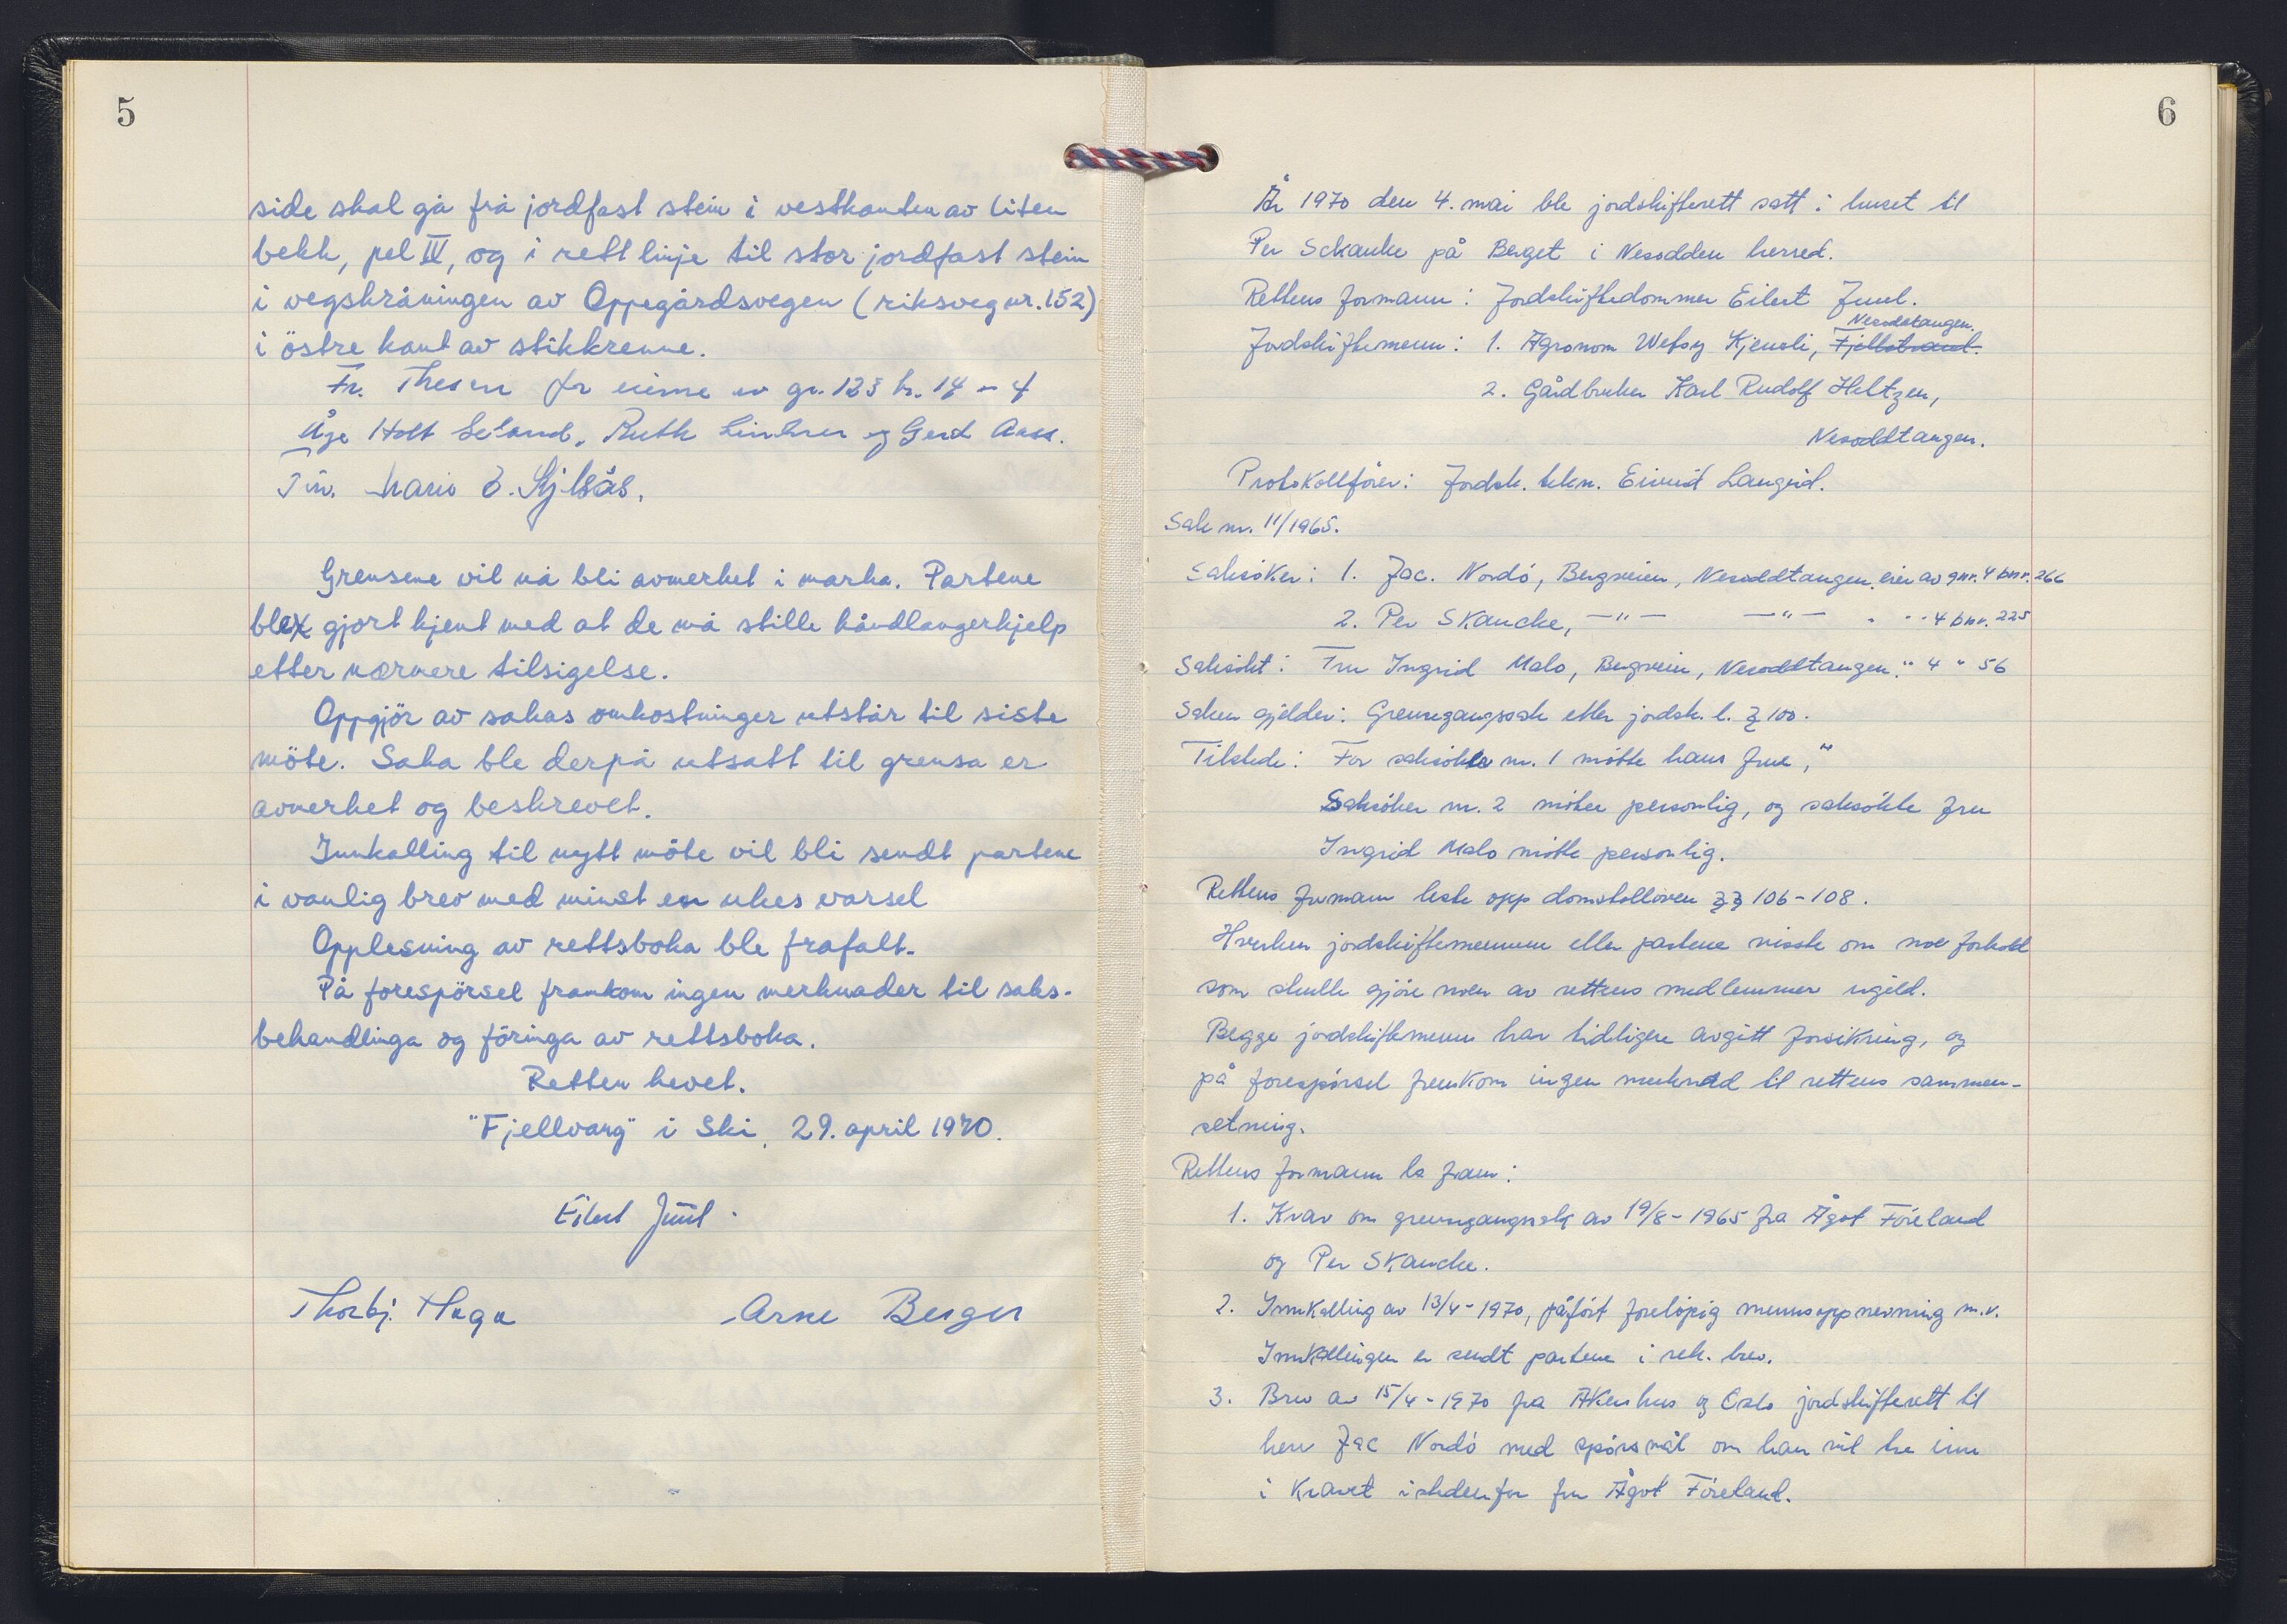 5
side skal gå frå jordfast stein i vestkanten av liten
bekk, pel IV, og i rett linje til stor jordfast stein
i vegskråningen av Oppegårdsvegen (riksveg nr. 152)
i östre kant av stikkrenne.
Fr. Thesen for eierne av gr. 123 br. 14 - 4
Åge Holt Ruth og Gerd Aass.
Grensene vil nå bli avmerket i marka. Partene
ble gjort kjent med at de må stille håndlangerhjelp
etter nærmere tilsigelse.
Oppgjör av sakas omkostninger utstår til siste
möte. Saka ble derpå utsatt til grensa er
avmerket og beskrevet.
Innkalling til nytt möte vil bli sendt partene
i vanlig brev med minst en ukes varsel
Opplesning av rettsboka ble frafalt.
På forespörsel framkom ingen merknader til saks-
behandlinga og föringa av rettsboka.
Retten hevet.
"Fjellvang" i Ski, 29. april 1970.
Eilert Juul.
Thorbj. Haga Arne Berger
6
År 1970 den 4. mai ble jordskifterett satt i huset til
Per Schanke på Berget i Nesodden herred.
Rettens formann: Jordskiftedommer Eilert Juul.
Nesoddtangen.
Jordskiftemenn: 1. Agronom Kjensli, Fjellstrand.
2. Gårdbruker Karl Rudolf Heltzen,
Nesoddtangen.
Protokollförer: Jordsk. tekn. Eivind Langrid.
Sak nr. 11/1965.
Saksöker: 1. Jac. Nordö, Bergveien, Nesoddtangen. eier av gnr. 4 bnr. 266
2. Per Skancke, —"— —"— . .. 4 bnr. 225
Saksökt: Fru Ingrid Malo, Bergveien, Nesoddtangen. " 4 " 56
Saken gjelder: Grensegangssak etter jordsk. l. § 100.
Tilstede: For saksöker nr. 1 mötte hans frue,
Saksöker nr. 2 möter personlig, og saksökte fru
Ingrid Malo mötte personlig.
Rettens formann leste opp domstolloven §§ 106-108.
Hverken jordskiftemennene eller partene visste om noe forhold
som skulle gjöre noen av rettens medlemmer ugild.
Begge jordskiftemenn har tidligere avgitt forsikring, og
på forespörsel fremkom ingen merknad til rettens sammen-
setning.
Rettens formann la fram:
1. Krav om grensegangssak av 19/8-1965 fra Ågot Föreland
og Per Skancke.
2. Innkalling av 13/4-1970, påfört forelöpig mennsoppnevning m.v.
Innkallingen er sendt partene i rek. brev.
3. Brev av 15/4-1970 fra Akershus og Oslo jordskifterett til
herr Jac Nordö med spörsmål om han vil tre inn
i kravet istedenfor fru Ågot Föreland.